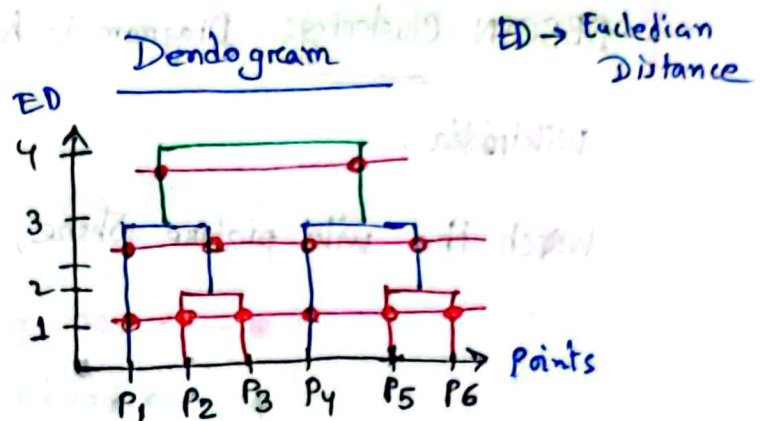 Dendogram
ED → Eucledian
Distance
ED
4
3
2
1
Points
P1 P2 P3 P4 P5 P6